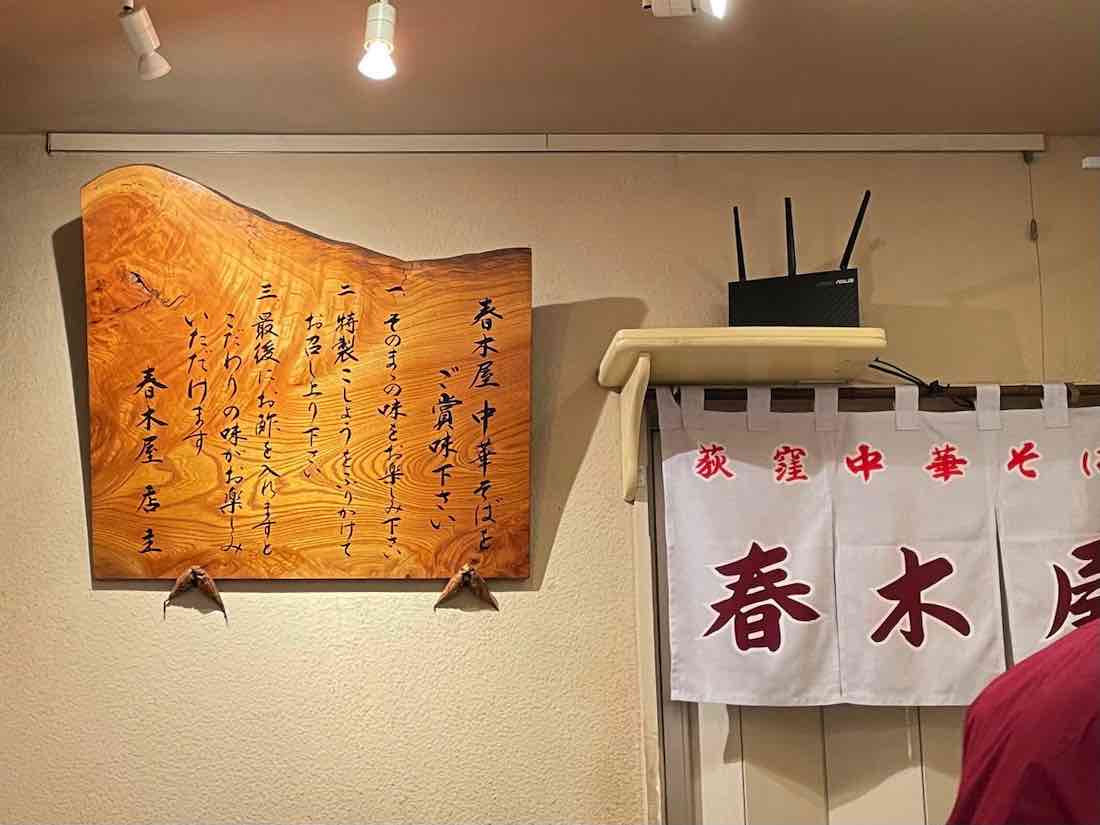 春木屋 中華そばを
ご賞味下さい
一 そのまゝの味をお楽しみ下さい
二 特製こしょうをふりかけて
お召し上り下さい
三 最後にお酢を入れますと
こだわりの味がお楽しみ
いただけます
春木屋 店主
ASUS
荻窪中華そば
春木屋